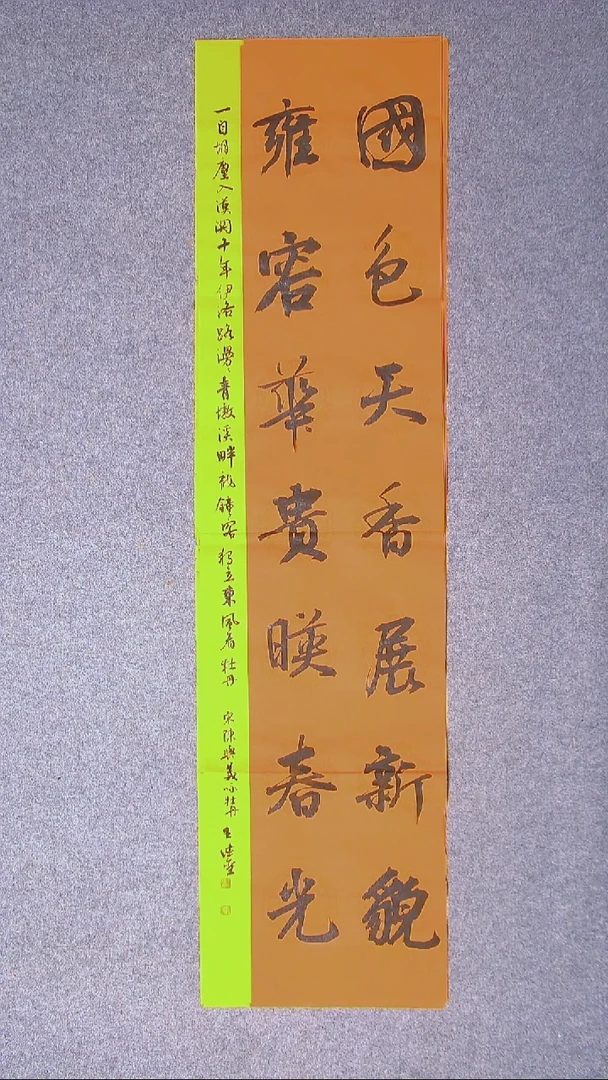 國色天香展新貌
雍容華貴暎春光
一自胡塵入漢關十年伊洛路漫〻青墩溪畔龍鐘客獨立東風看牡丹
宋陳與義詠牡丹